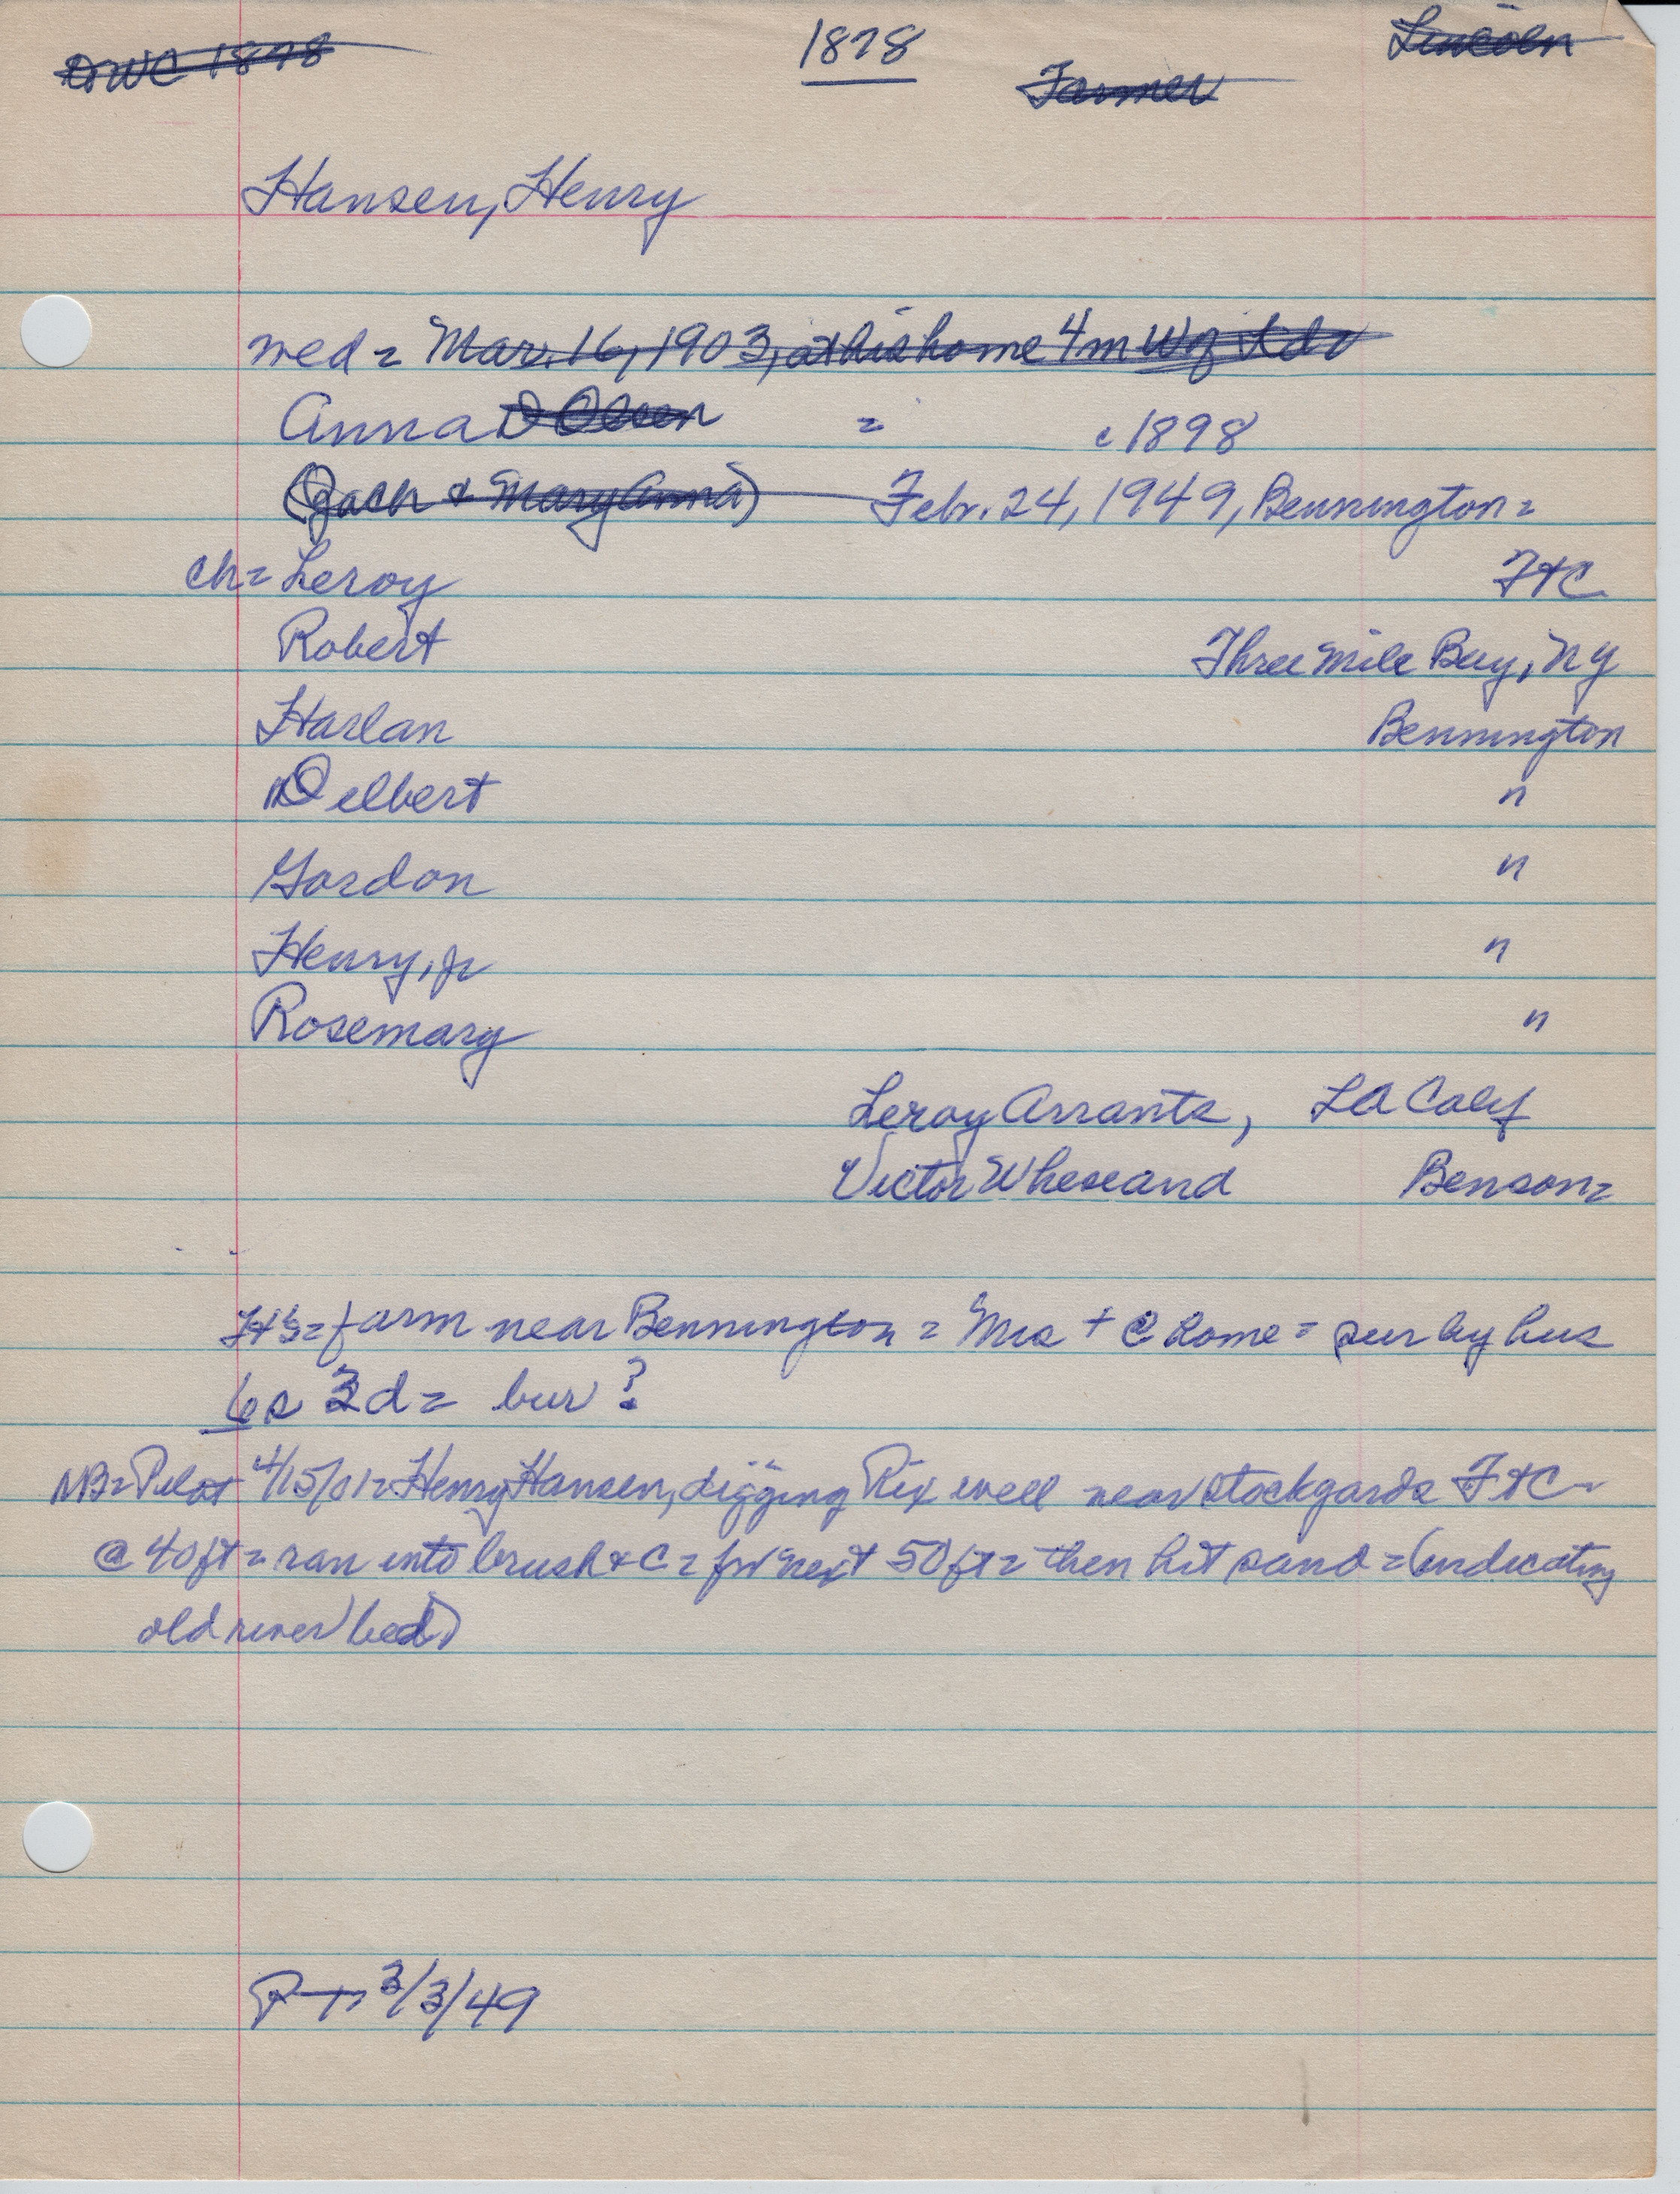 DWC 1878 1878 Lincoln
Farmer
Hansen, Henry
med = Mar. 16, 1903, at his home 4m W of
Anna D Olsen = c 1898
(Jach & Mary Anna) Febr. 24, 1949, Bennington =
ch = Leroy FtC
Robert Three Mile Bay, NY
Harlan Bennington
Delbert "
Gordon "
Henry, jr "
Rosemary "
Leroy Arrants, LA Calif
Victor Benson =
= farm near Bennington = Mrs + @ home = sur by hus
6s 3d = bur?
NB = Pilot 4/15/01 = Henry Hansen, digging Rix well near stockyards FtC
@ 40 ft = ran into brush & C = for next 50 ft = then hit sand = (indicating
old river bed)
3/3/49